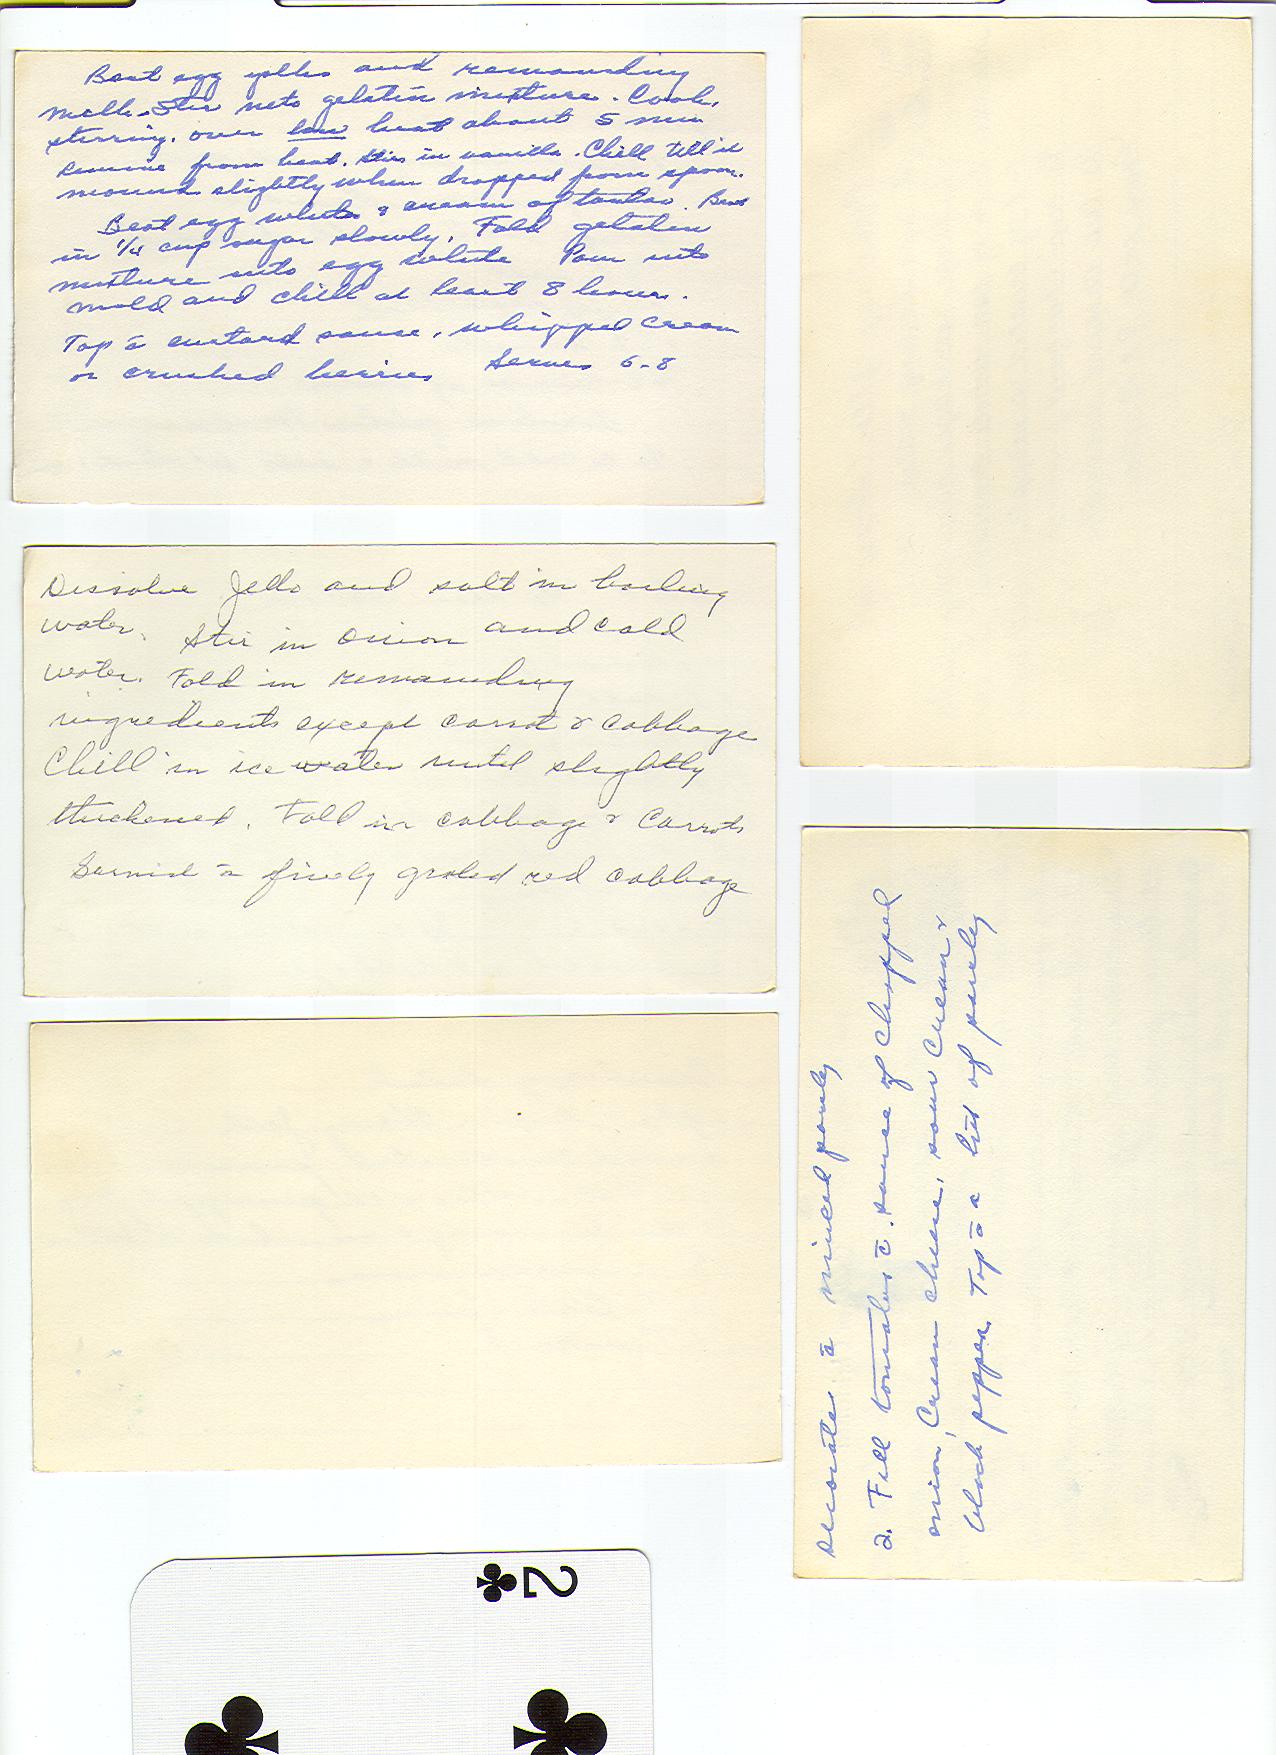 Beat egg yolks and remainding
milk. Stir into gelatin mixture. Cook,
stirring, over low heat about 5 min
Remove from heat. Stir in vanilla. Chill till it
mound slightly when dropped from spoon.
Beat egg whites & cream of tartar. Beat
in 1/4 cup sugar slowly. Fold gelatin
mixture into egg white Pour into
mold and chill at least 8 hours.
Top c̄ custard sauce, whipped cream
or crushed berries Serves 6-8
Dissolve Jello and salt in boiling
water. Stir in onion and cold
water. Fold in remainding
ingredients except carrot & cabbage
Chill in ice water until slightly
thickened. Fold in cabbage & carrots
Garnish c̄ finely grated red cabbage
Decorate c̄ minced parsley
2. Fill tomatoes c̄ sauce of chopped
onion, cream cheese, sour cream &
black pepper. Top c̄ a bit of parsley
2